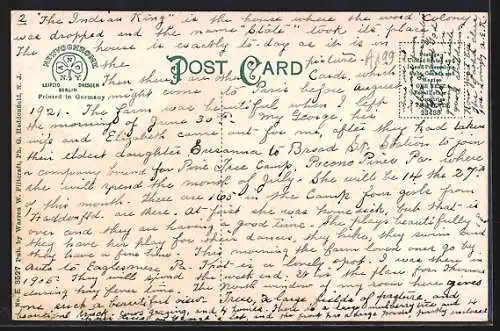 2 "The Indian King" is the house where the word Colony
was dropped and the name "State" took its place.
The house is exactly to-day as it is in
the picture.
Then there are other Cards, which
might come to Paris before August
1921. The farm was beautiful when I left
the morning of June 30th. My George, his
wife and Elizabeth came out for me, after they had taken
their eldest daughter Susanna to Broad St. Station to join
a company bound for Pine Tree Camp, Pocono Pines Pa. where
she will spend the month of July. She will be 14 the 27th
of this month. There are 165 in the Camp four girls from
Haddonfield are there. At first she was home sick, but that is
over and they are having a good time. She plays beautifully and
they have her play for their dances, they hike, they swim and
they have a fine time. This morning the farm loven ones go by
Auto to Eaglesmere Pa. That is a lovely spot. I was there in
1905. They will spend the week end. It is the place for Thomas
during hay fever time. The North window of my room here gives
such a beautiful view. Trees, & large fields of pasture and
beautiful brook. Cows grazing, and
POST CARD
NEWVOCHROME
LEIPZIG DRESDEN
BERLIN
Printed in Germany
No. E 3527 Pub. by Warren W. Fillkratt, Ph. G. Haddonfield, N. J.